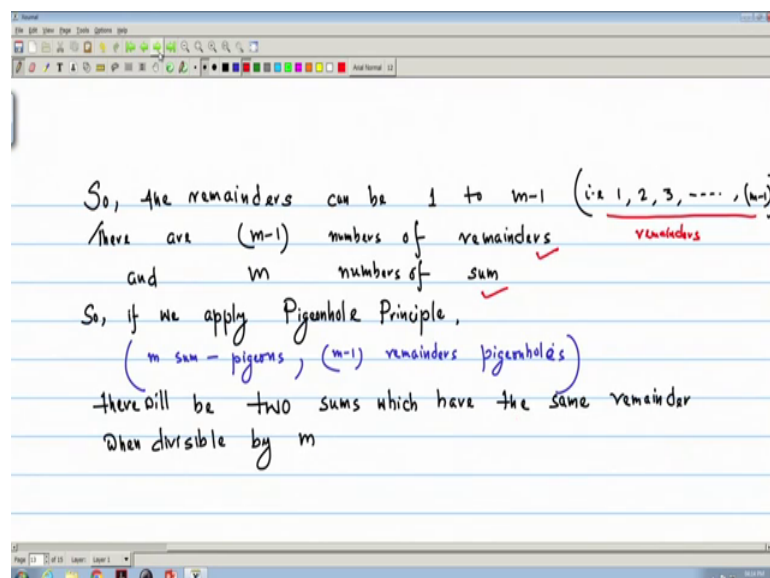 Journal
File Edit View Page Tools Options Help
Arial Normal 12
So, the remainders can be 1 to m-1 (i.e 1, 2, 3, ----, (m-1)
remainders
There are (m-1) numbers of remainders
and m numbers of sum
So, if we apply Pigeonhole Principle,
(m sum - pigeons, (m-1) remainders pigeonholes)
there will be two sums which have the same remainder
when divisible by m
Page 13 of 15 Layer: Layer 1